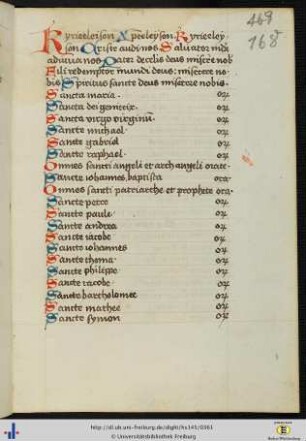 469
168
Kyrieeleison Xpeeleyson Kyrieeley
son Criste audi nos Saluator mdi
adiuua nos Pater de celis deus miserē nob
Fili redemptor mundi deus: miserere no
bis Spiritus sancte deus miserere nobis
Sancta maria. oꝝ
Sancta dei genitrix. oꝝ
Sancta virgo virginū. oꝝ
Sancte michael oꝝ
Sancte gabriel oꝝ
Sancte raphael oꝝ
Omnes sancti angeli et archangeli orate
Sancte iohannes baptista ora
Omnes sancti patriarche et prophete ora
Sancte petre oꝝ
Sancte paule oꝝ
Sancte andrea oꝝ
Sancte iacobe oꝝ
Sancte iohannes oꝝ
Sancte thoma oꝝ
Sancte philippe oꝝ
Sancte iacobe oꝝ
Sancte bartholomee oꝝ
Sancte mathee oꝝ
Sancte symon oꝝ
http://dl.ub.uni-freiburg.de/diglit/hs145/0361
© Universitätsbibliothek Freiburg